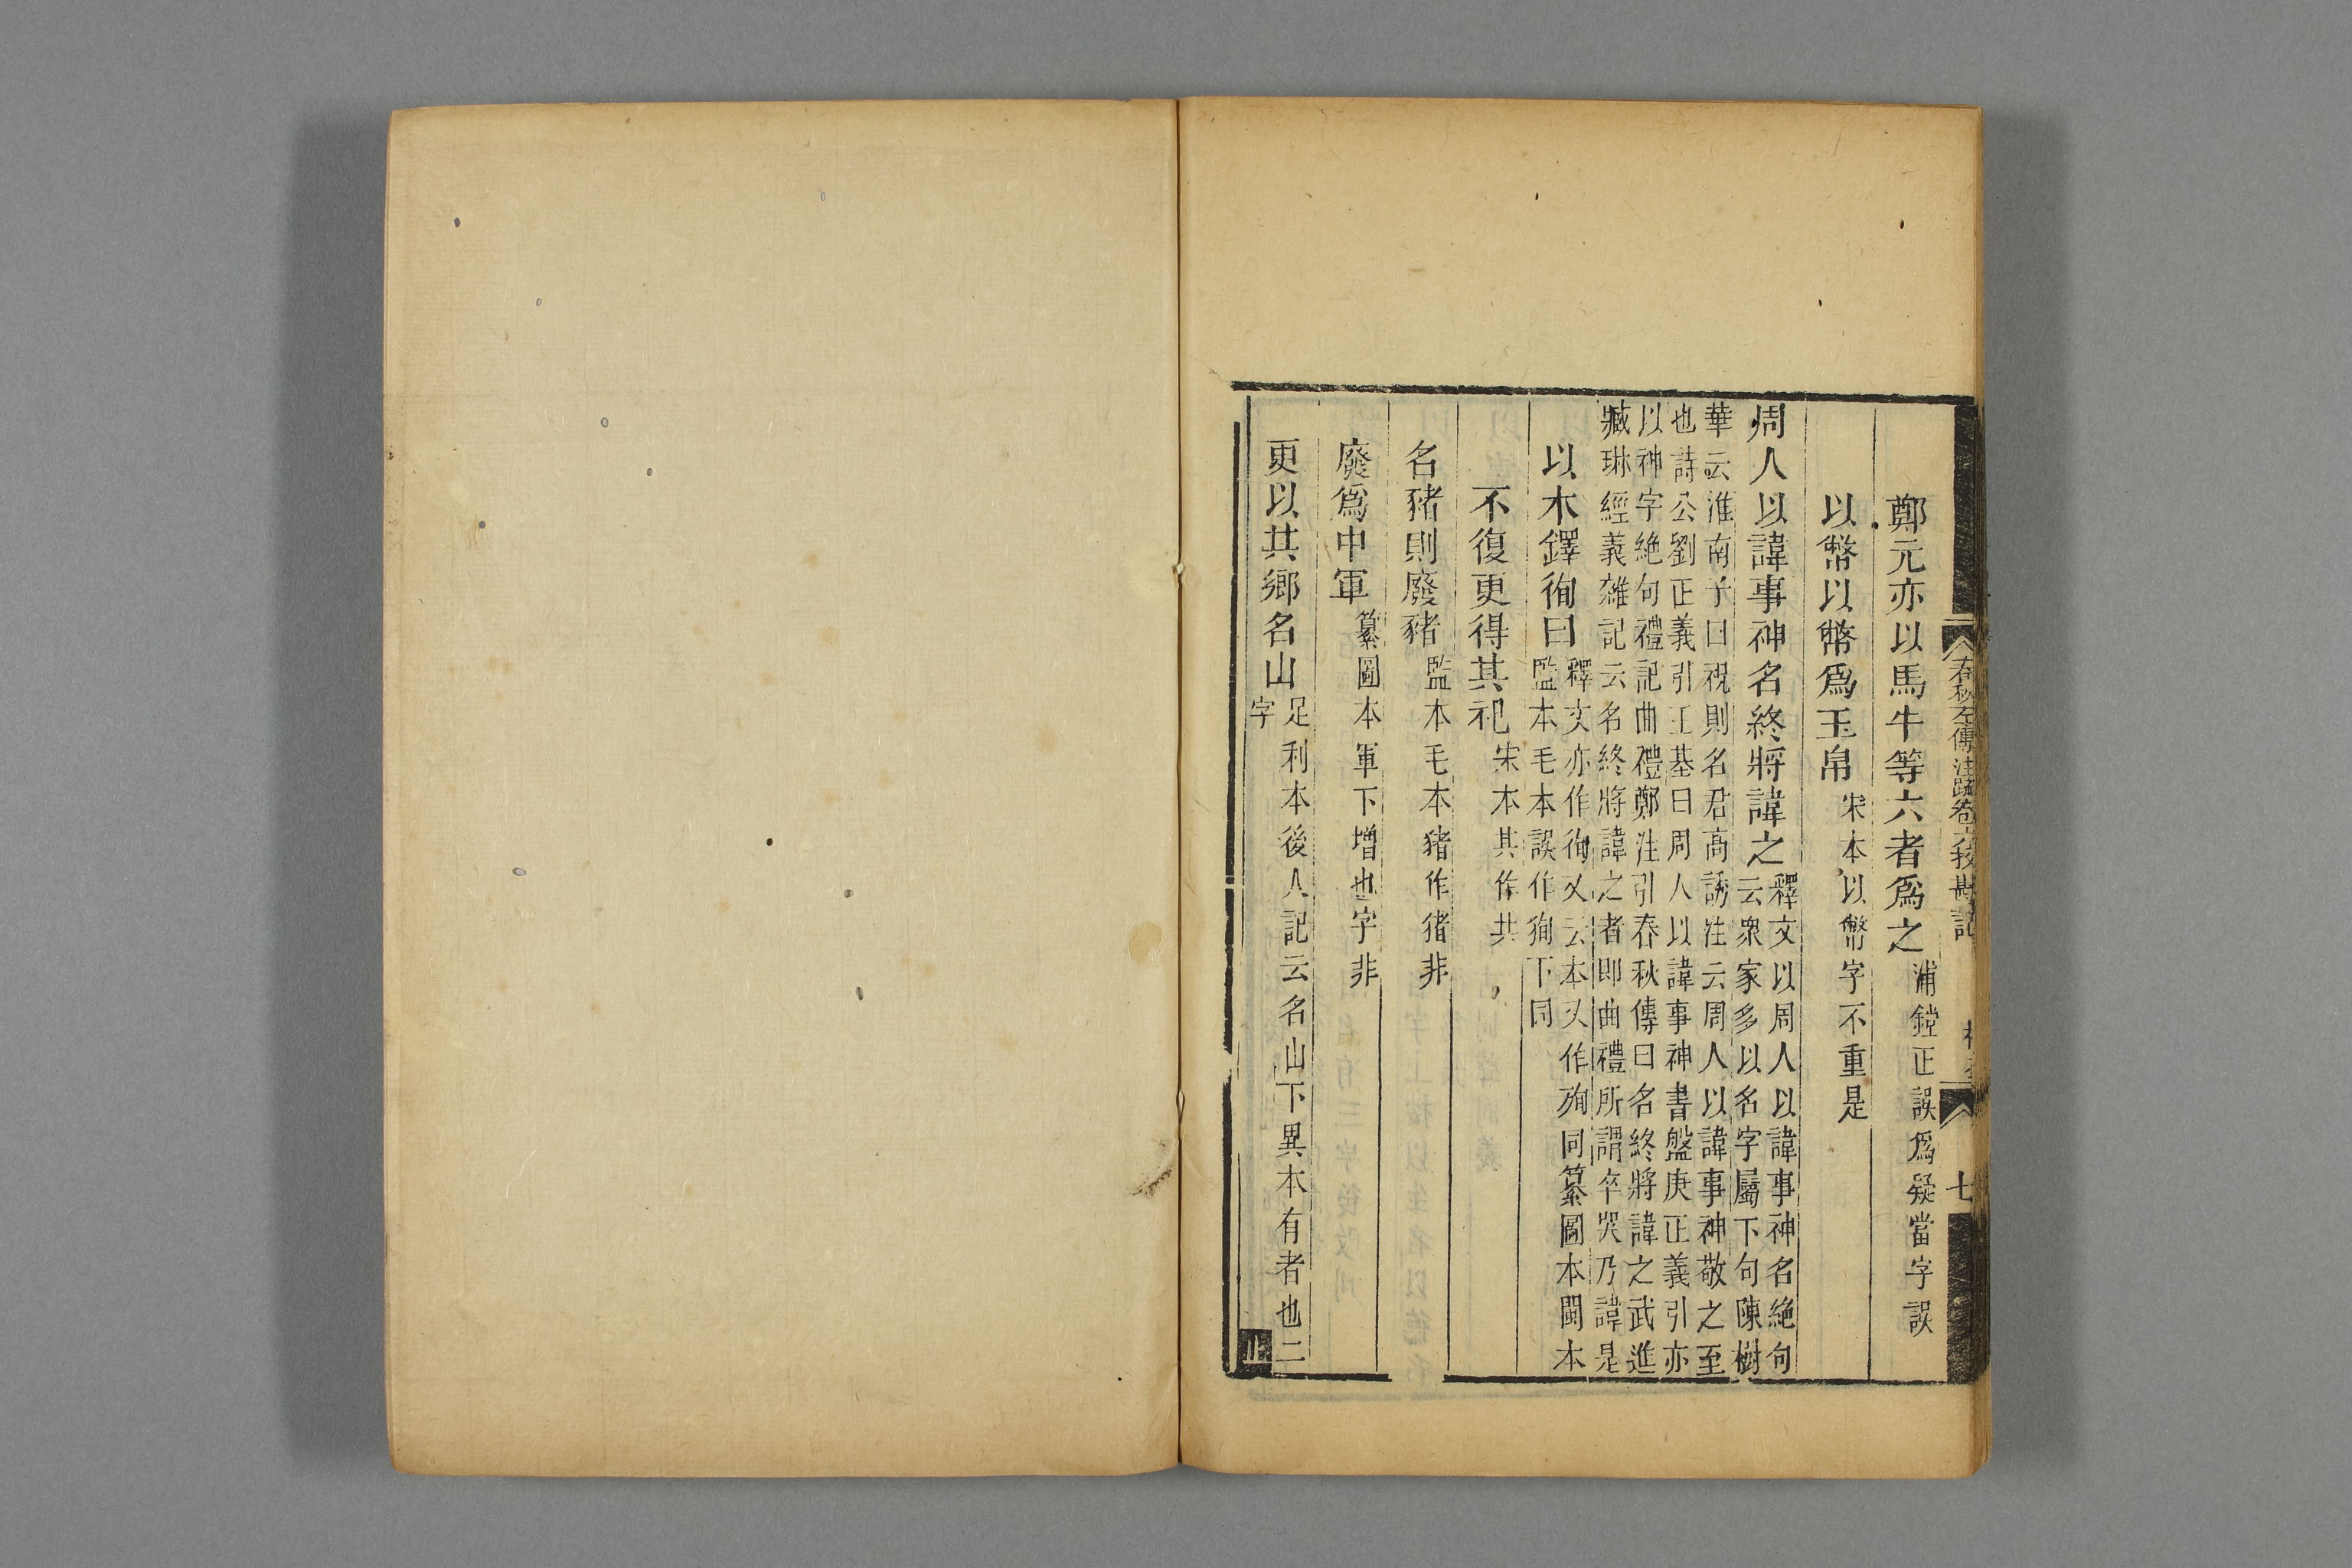 春秋左傳注疏卷六挍勘記
七
鄭元亦以馬牛等六者爲之 浦鏜正誤爲疑當字誤
以幣以幣爲玉帛 宋本以幣字不重是
周人以諱事神名終將諱之 釋文以周人以諱事神名絶句
云衆家多以名字屬下句陳樹
華云淮南子曰祝則名君高誘注云周人以諱事神敬之至
也詩公劉正義引王基曰周人以諱事神書盤庚正義引亦
以神字絶句禮記曲禮鄭注引春秋傳曰名終將諱之武進
臧琳經義雜記云名終將諱之者即曲禮所謂卒哭乃諱是
以木鐸徇曰 釋文亦作徇又云本又作殉同纂圖本閩本
監本毛本誤作狥下同
不復更得其祀 宋本其作共
名豬則廢豬 監本毛本豬作猪非
廢爲中軍 纂圖本軍下增也字非
更以其鄉名山 足利本後人記云名山下異本有者也二
字
止